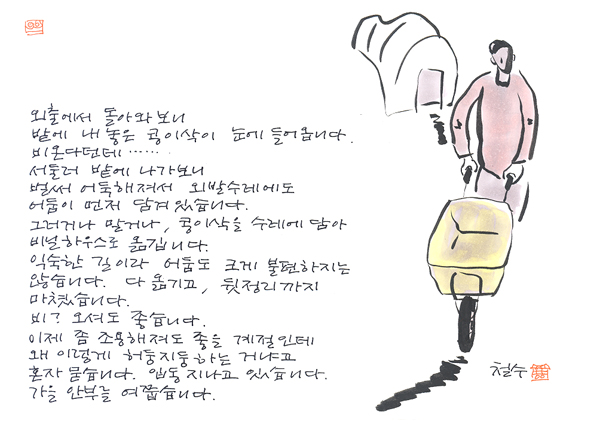 외출에서 돌아와 보니
밭에 내 놓은 콩이삭이 눈에 들어옵니다.
비온다던데 ......
서둘러 밭에 나가보니
벌써 어둑해져서 외발수레에도
어둠이 먼저 담겨있습니다.
그러거나 말거나, 콩이삭을 수레에 담아
비닐하우스로 옮깁니다.
익숙한 길이라 어둠도 크게 불편하지는
않습니다. 다 옮기고, 뒷정리까지
마쳤습니다.
비? 오셔도 좋습니다.
이제 좀 조용해져도 좋을 계절인데
왜 이렇게 허둥지둥하는 거냐고
혼자 묻습니다. 입동 지나고 있습니다.
가을 안부를 여쭙습니다.
철수